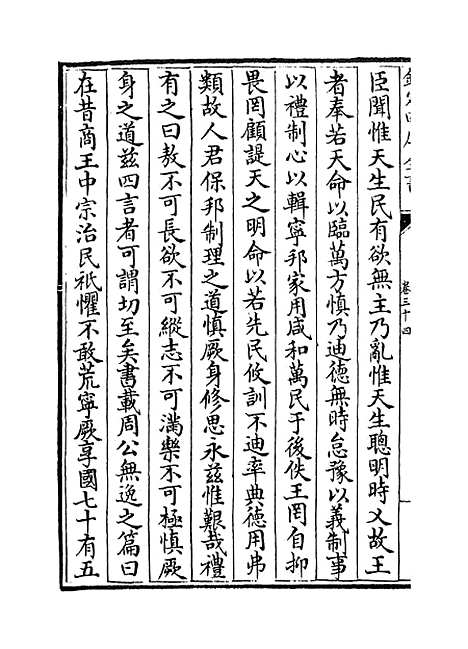 欽定四庫全書
卷三十四
臣聞惟天生民有欲無主乃亂惟天生聰明時乂故王
者奉若天命以臨萬方慎乃迪德無時怠豫以義制事
以禮制心以輯寧邦家用咸和萬民于後佚王罔自抑
畏罔顧諟天之明命以若先民攸訓不迪率典德用弗
類故人君保邦制理之道慎厥身修思永兹惟艱哉禮
有之曰敖不可長欲不可縱志不可滿樂不可極慎厥
身之道兹四言者可謂切至矣書載周公無逸之篇曰
在昔商王中宗治民祇懼不敢荒寧厥享國七十有五